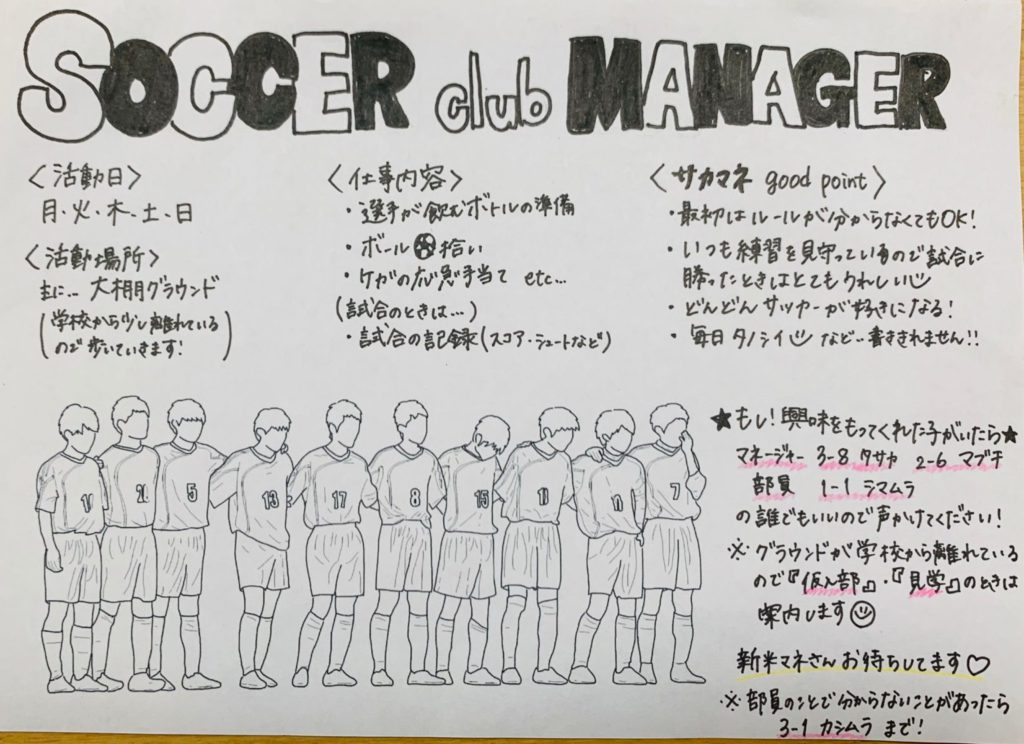 SOCCER club MANAGER
〈活動日〉
月・火・木・土・日
〈活動場所〉
主に… 大棚グラウンド
(学校から少し離れている
ので歩いていきます!)
〈仕事内容〉
・選手が飲むボトルの準備
・ボール拾い
・ケガの応急手当て etc…
(試合のときは…)
・試合の記録(スコア・シュートなど)
〈サカマネ good point〉
・最初はルールが分からなくてもOK!
・いつも練習を見守っているので試合に
勝ったときはとてもうれしい
・どんどんサッカーが好きになる!
・毎日タノシイ など…書ききれません!!
10
5
13
17
8
15
11
7
★もし!興味をもってくれた子がいたら★
マネージャー 3-8 タサカ 2-6 マブチ
部員 1-1 シマムラ
の誰でもいいので声かけてください!
※グラウンドが学校から離れている
ので『仮入部』・『見学』のときは
案内します
新米マネさんお待ちしてます♡
※部員のことで分からないことがあったら
3-1 カシムラ まで!